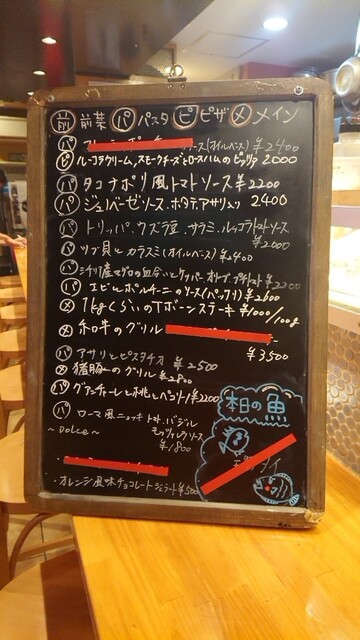 前 前菜 パ パスタ ピ ピザ メ メイン
パ ソース(オイルベース) ¥2400
ピ ルーコラクリーム、スモークチーズとロースハムのピッツァ 2000
パ タコナポリ風トマトソース ¥2200
パ ジェノベーゼソース、ホタテ、アサリ入り 2400
パ トリッパ、ウズラ豆、サラミ、ルッコラトマトソース
¥2000
パ ツブ貝とカラスミ(オイルベース) ¥2400
パ シチリア産マグロの血合いとケッパー、オリーブ、プチトマト ¥2200
パ エビとポルチーニのソース(パッケリ) ¥2600
メ 1kgくらいのTボーンステーキ ¥1000/100g
メ 千口牛のグリル
¥3,500
パ アサリとピスタチオ ¥2500
メ 猪豚のグリル ¥2800
パ グアンチャーレと桃とペコリーノ ¥2200
パ ローマ風ニョッキ トマト、バジル
モッツァレラソース
¥1,800
~DOLCE~
・オレンジ風味チョコレートジェラート ¥500
本日の魚